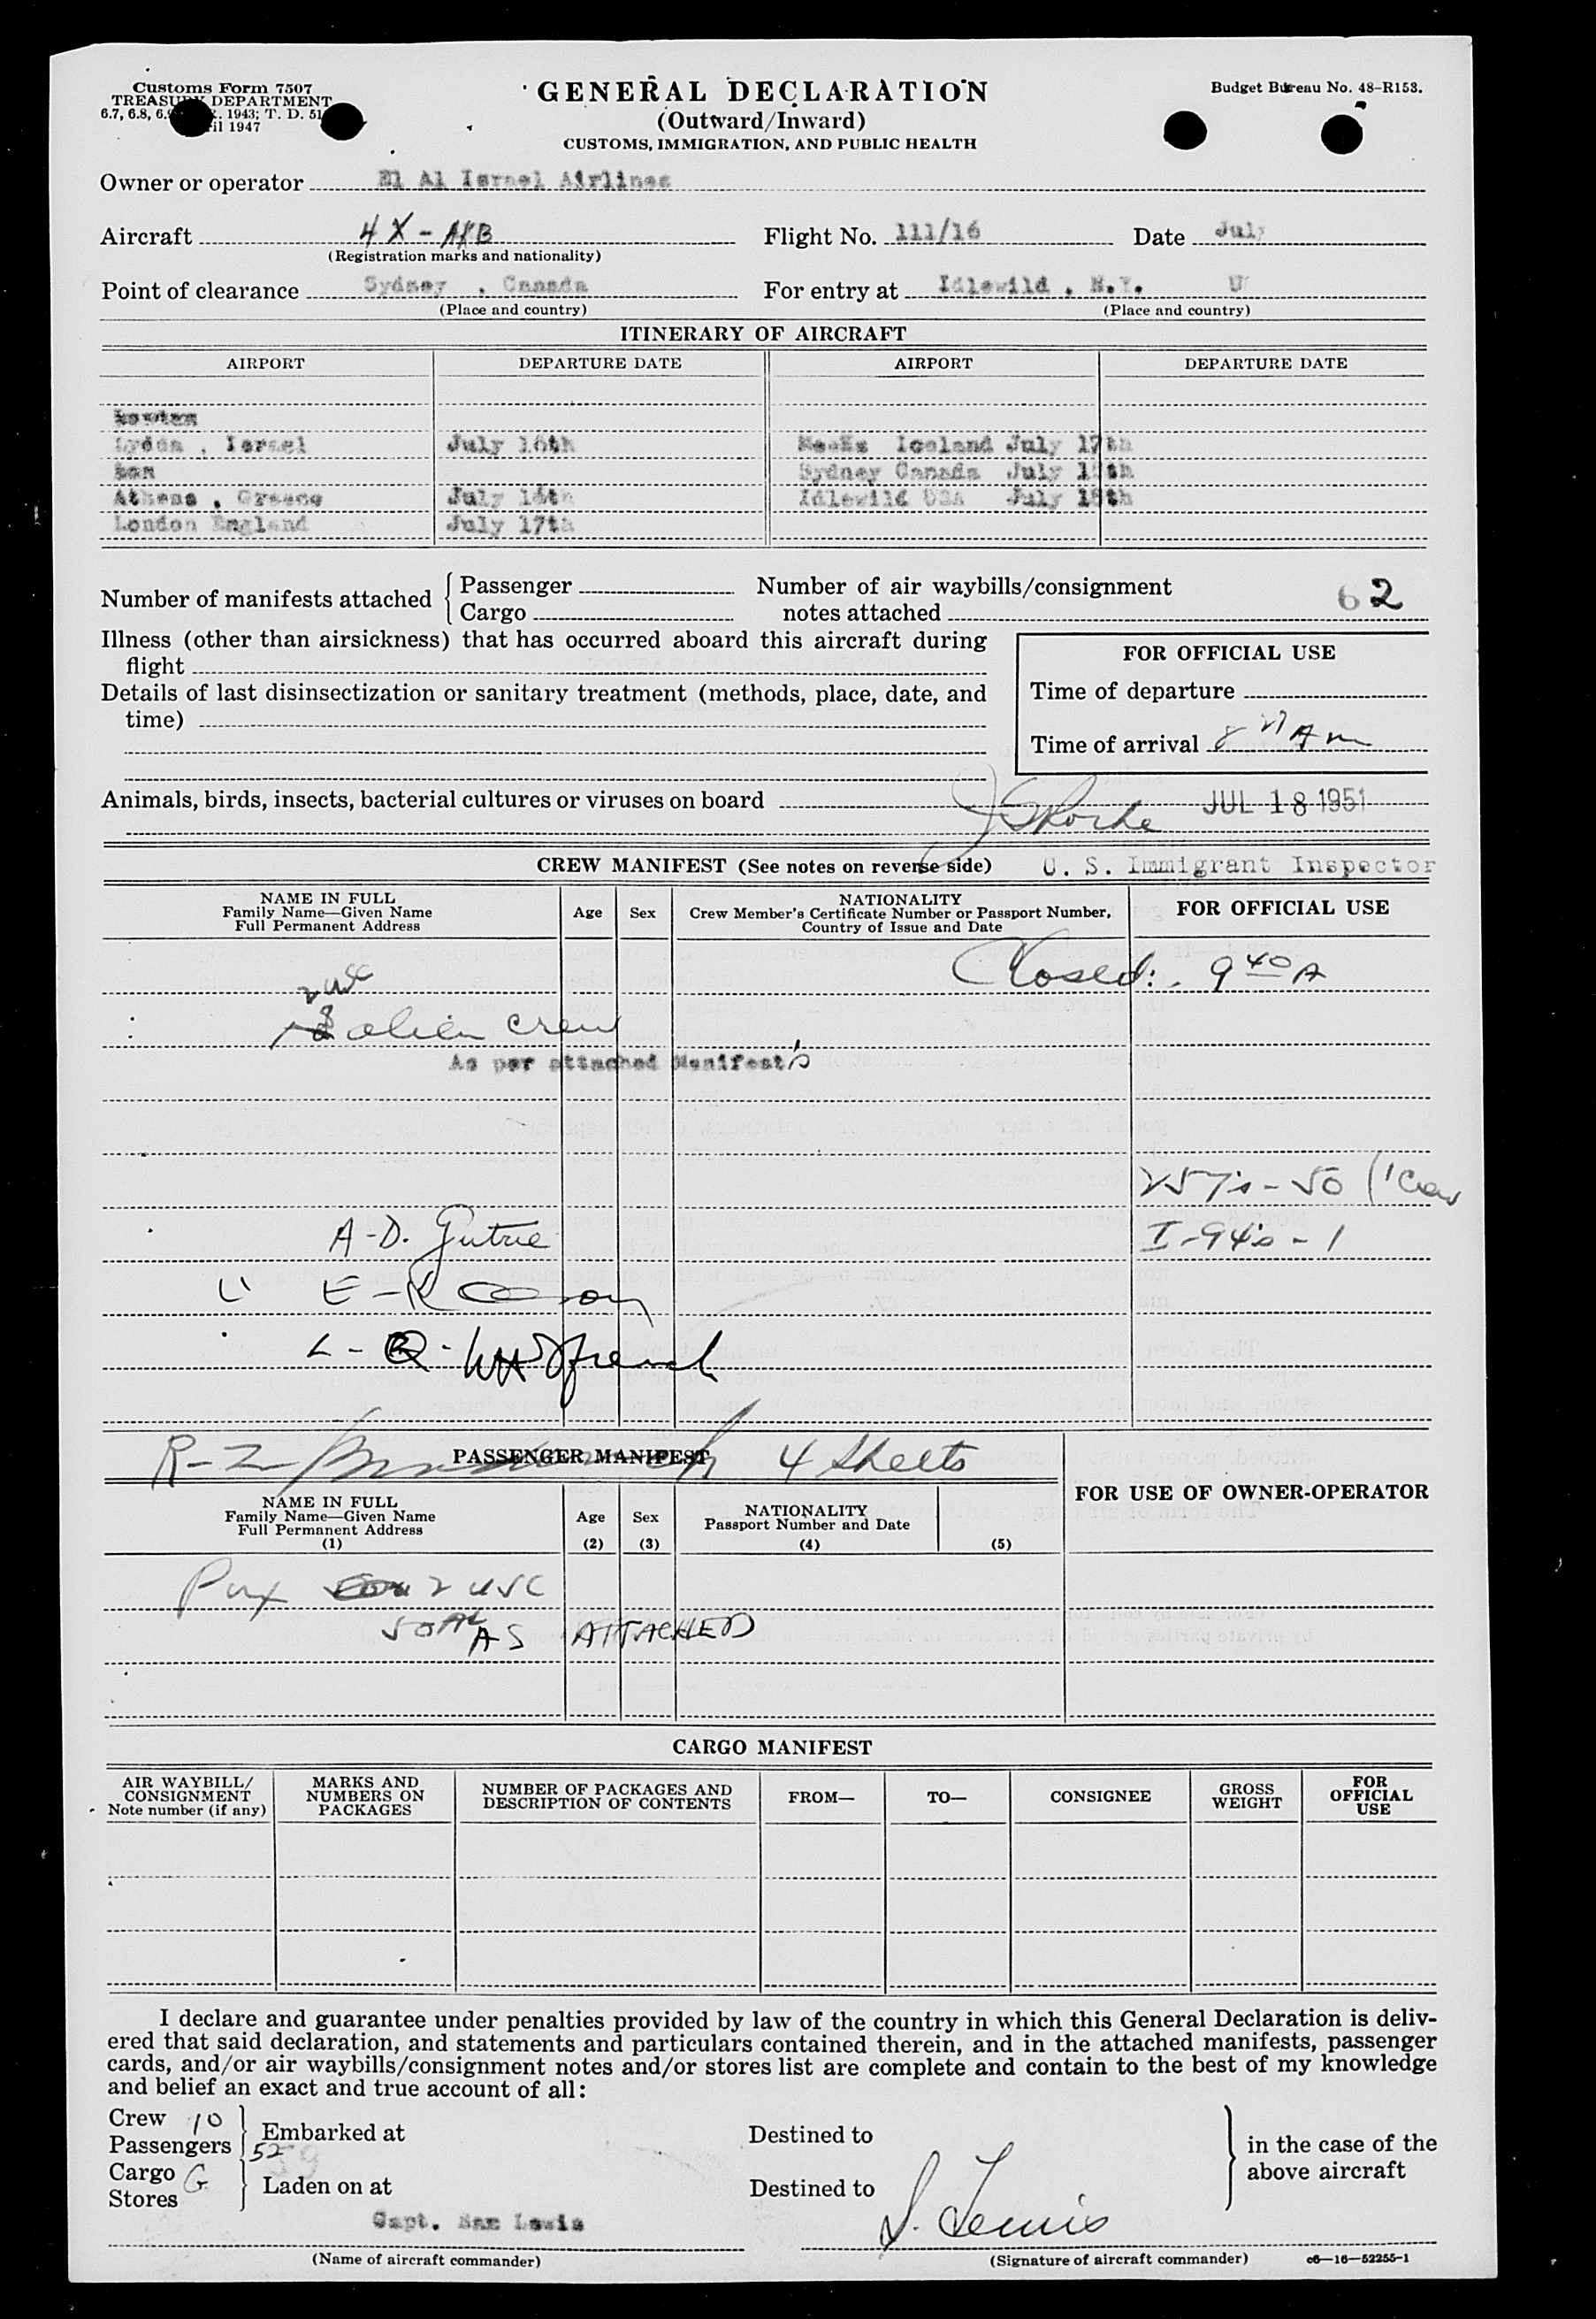 Customs Form 7507
TREASURY DEPARTMENT
6.7, 6.8, 6. 1943; T. D. 51
ril 1947
GENERAL DECLARATION
(Outward/Inward)
CUSTOMS, IMMIGRATION, AND PUBLIC HEALTH
Budget Bureau No. 48-R153.
Owner or operator El Al Israel Airlines
Aircraft 4X-AKB Flight No. 111/16 Date July
(Registration marks and nationality)
Point of clearance Sydney , Canada For entry at Idlewild , N.Y. U
(Place and country) (Place and country)
ITINERARY OF AIRCRAFT
AIRPORT DEPARTURE DATE AIRPORT DEPARTURE DATE
Lydda , Israel July 16th Meeks Iceland July 17th
Lon Sydney Canada July 18th
Athens , Greece July 16th Idlewild USA July 18th
London England July 17th
Number of manifests attached { Passenger Number of air waybills/consignment
Cargo notes attached 62
Illness (other than airsickness) that has occurred aboard this aircraft during
flight
FOR OFFICIAL USE
Details of last disinsectization or sanitary treatment (methods, place, date, and
time)
Time of departure
Time of arrival 8 Am
Animals, birds, insects, bacterial cultures or viruses on board JUL 18 1951
CREW MANIFEST (See notes on reverse side) U. S. Immigrant Inspector
NAME IN FULL
Family Name—Given Name
Full Permanent Address
Age Sex
NATIONALITY
Crew Member's Certificate Number or Passport Number,
Country of Issue and Date
FOR OFFICIAL USE
Closed: 9 40 A
2 usc
8 alien crew
As per attached Manifest's
257's - 50 (1 Crew
A-D. Gutrie I-94's - 1
E-K
L-Q-
R-Z 4 Sheets
PASSENGER MANIFEST
FOR USE OF OWNER-OPERATOR
NAME IN FULL
Family Name—Given Name
Full Permanent Address
(1)
Age
(2)
Sex
(3)
NATIONALITY
Passport Number and Date
(4) (5)
Pax 2 USC
50 AL
AS ATTACHED
CARGO MANIFEST
AIR WAYBILL/
CONSIGNMENT
Note number (if any)
MARKS AND
NUMBERS ON
PACKAGES
NUMBER OF PACKAGES AND
DESCRIPTION OF CONTENTS
FROM— TO— CONSIGNEE
GROSS
WEIGHT
FOR
OFFICIAL
USE
I declare and guarantee under penalties provided by law of the country in which this General Declaration is deliv-
ered that said declaration, and statements and particulars contained therein, and in the attached manifests, passenger
cards, and/or air waybills/consignment notes and/or stores list are complete and contain to the best of my knowledge
and belief an exact and true account of all:
Crew 10
Passengers 52 Embarked at Destined to
Cargo G
Stores Laden on at Destined to
in the case of the
above aircraft
Capt. Sam Lewis S. Lewis
(Name of aircraft commander) (Signature of aircraft commander) c6—16—52255-1